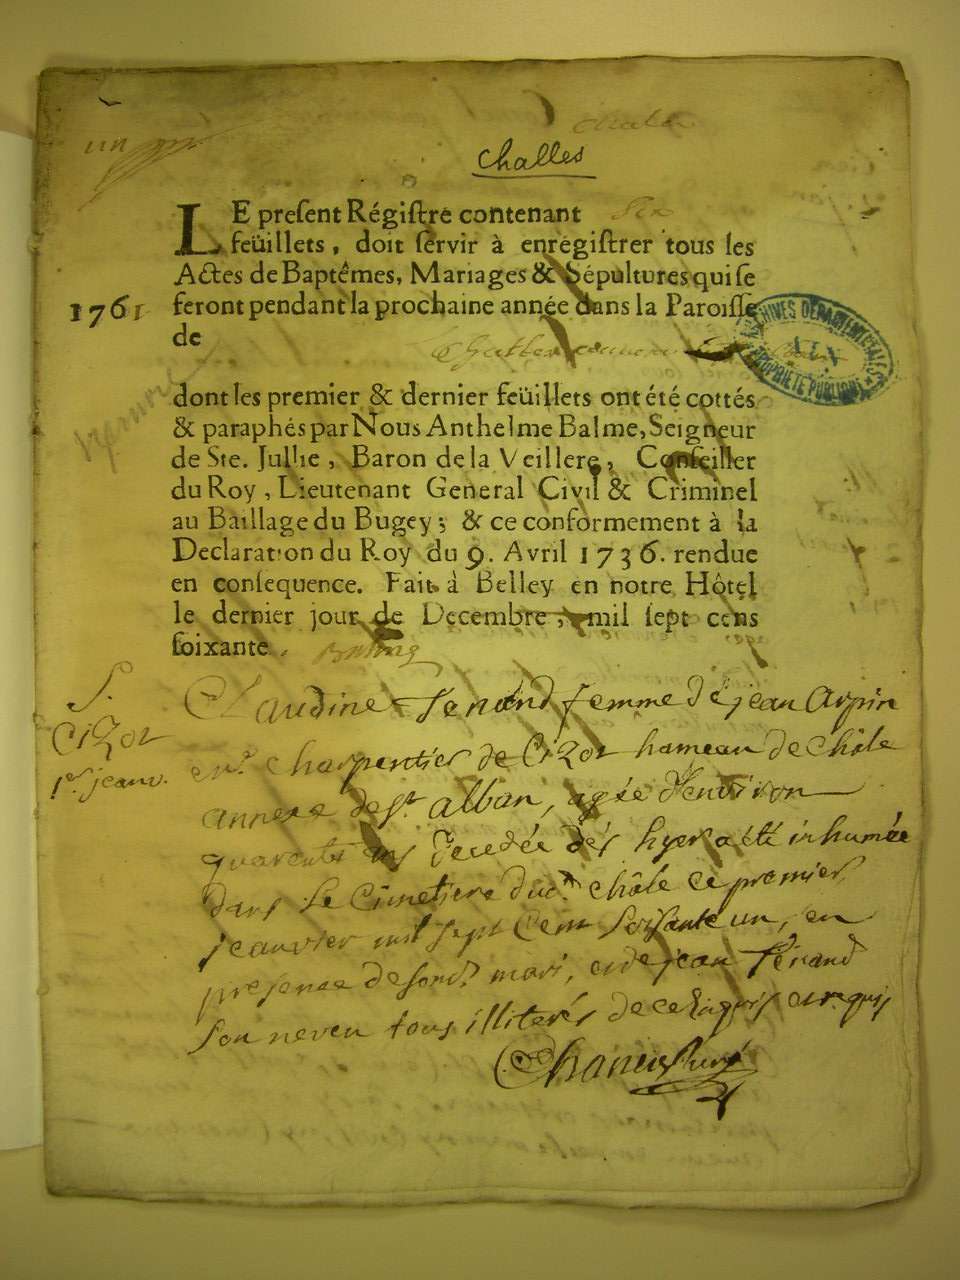 un
challes
Challes
LE present Régistre contenant six
feüillets, doit servir à enregistrer tous les
Actes de Baptêmes, Mariages & Sépultures qui se
1761 feront pendant la prochaine année dans la Paroisse
de Challes
ARCHIVES DEPARTEMENTALES
AIN
PROPRIÉTÉ PUBLIQUE
premier
dont les premier & dernier feüillets ont été cottés
& paraphés par Nous Anthelme Balme, Seigneur
de Ste. Jullie, Baron de la Veillere, Conseiller
du Roy, Lieutenant General Civil & Criminel
au Baillage du Bugey; & ce conformement à la
Declaration du Roy du 9. Avril 1736. rendue
en consequence. Fait à Belley en notre Hôtel
le dernier jour de Decembre, mil sept cens
soixante. Balme
S.
Cizot
1er jeanv.
Claudine Fenand femme de jean arpin
me. charpentier de Cizot hameau de châle
annexe de st alban, agée d'environ
quarente ans decedée dés hyer a été inhumée
dans le Cimetiere dud. châle ce premier
jeanvier mil sept Cent soissante un, en
presence de sond. mari, et de jean Fenand
son neveu tous illiterés de ce enquis et requis
curé